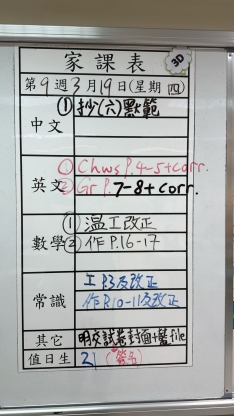 家課表
3D
第9週3月19日(星期四)
中文
① 抄(六)默範
英文
① Chws P.4-5+corr.
② Gr P.7-8+corr.
數學
① 溫工改正
② 作P.16-17
常識
工P.3及改正
作P.10-11及改正
其它
明交試卷封面+籃file
值日生
21
(簽名)